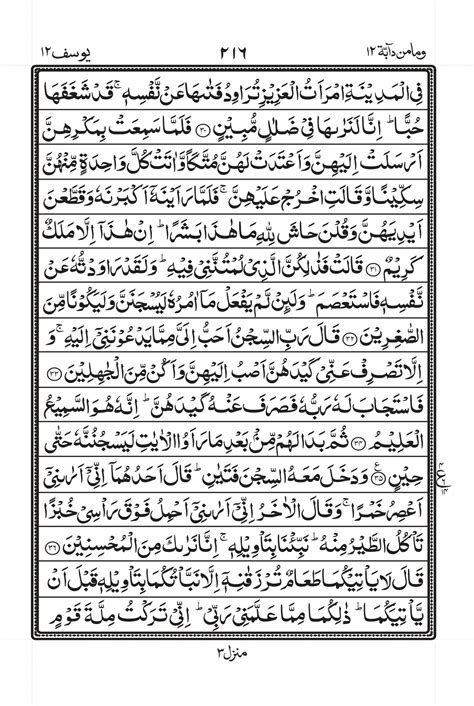 ومامن دآبة ١٢ ٢١٦ يوسف ١٢
فِى الْمَدِيْنَةِ امْرَاَتُ الْعَزِيْزِ تُرَاوِدُ فَتٰىهَا عَنْ نَّفْسِهٖ ۚ قَدْ شَغَفَهَا
حُبًّا ؕ اِنَّا لَنَرٰىهَا فِىْ ضَلٰلٍ مُّبِيْنٍ ﴿۳۰﴾ فَلَمَّا سَمِعَتْ بِمَكْرِهِنَّ
اَرْسَلَتْ اِلَيْهِنَّ وَاَعْتَدَتْ لَهُنَّ مُتَّكَاً وَّاٰتَتْ كُلَّ وَاحِدَةٍ مِّنْهُنَّ
سِكِّيْنًا وَّقَالَتِ اخْرُجْ عَلَيْهِنَّ ۚ فَلَمَّا رَاَيْنَهٗۤ اَكْبَرْنَهٗ وَقَطَّعْنَ
اَيْدِيَهُنَّ وَقُلْنَ حَاشَ لِلّٰهِ مَا هٰذَا بَشَرًا ؕ اِنْ هٰذَاۤ اِلَّا مَلَكٌ
كَرِيْمٌ ﴿۳۱﴾ قَالَتْ فَذٰلِكُنَّ الَّذِىْ لُمْتُنَّنِىْ فِيْهِ ؕ وَلَقَدْ رَاوَدْتُّهٗ عَنْ
نَّفْسِهٖ فَاسْتَعْصَمَ ؕ وَلَئِنْ لَّمْ يَفْعَلْ مَاۤ اٰمُرُهٗ لَيُسْجَنَنَّ وَلَيَكُوْنًا مِّنَ
الصّٰغِرِيْنَ ﴿۳۲﴾ قَالَ رَبِّ السِّجْنُ اَحَبُّ اِلَىَّ مِمَّا يَدْعُوْنَنِىْۤ اِلَيْهِ ۚ وَ
اِلَّا تَصْرِفْ عَنِّىْ كَيْدَهُنَّ اَصْبُ اِلَيْهِنَّ وَاَكُنْ مِّنَ الْجٰهِلِيْنَ ﴿۳۳﴾
فَاسْتَجَابَ لَهٗ رَبُّهٗ فَصَرَفَ عَنْهُ كَيْدَهُنَّ ؕ اِنَّهٗ هُوَ السَّمِيْعُ
الْعَلِيْمُ ﴿۳۴﴾ ثُمَّ بَدَا لَهُمْ مِّنْۢ بَعْدِ مَا رَاَوُا الْاٰيٰتِ لَيَسْجُنُنَّهٗ حَتّٰى
حِيْنٍ ﴿۳۵﴾ وَدَخَلَ مَعَهُ السِّجْنَ فَتَيٰنِ ؕ قَالَ اَحَدُهُمَاۤ اِنِّىْۤ اَرٰىنِىْۤ
اَعْصِرُ خَمْرًا ۚ وَقَالَ الْاٰخَرُ اِنِّىْۤ اَرٰىنِىْۤ اَحْمِلُ فَوْقَ رَاْسِىْ خُبْزًا
تَاْكُلُ الطَّيْرُ مِنْهُ ؕ نَبِّئْنَا بِتَاْوِيْلِهٖ ۚ اِنَّا نَرٰىكَ مِنَ الْمُحْسِنِيْنَ ﴿۳۶﴾
قَالَ لَا يَاْتِيْكُمَا طَعَامٌ تُرْزَقٰنِهٖۤ اِلَّا نَبَّاْتُكُمَا بِتَاْوِيْلِهٖ قَبْلَ اَنْ
يَّاْتِيَكُمَا ؕ ذٰلِكُمَا مِمَّا عَلَّمَنِىْ رَبِّىْ ؕ اِنِّىْ تَرَكْتُ مِلَّةَ قَوْمٍ
منزل ٣